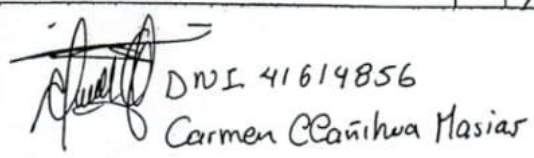 DNI 41614856
Carmen CCañihua Masias